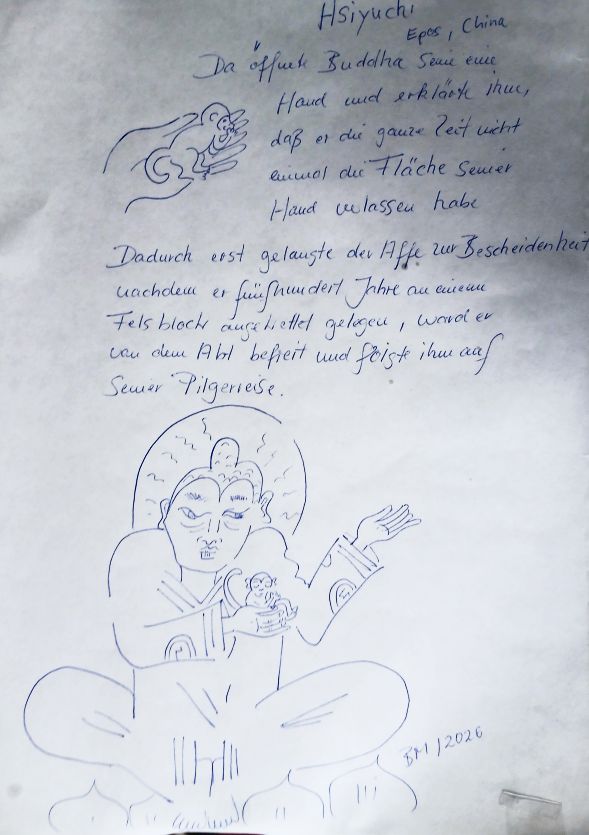 Hsiyuchi
Epos, China
Da öffnete Buddha seine eine
Hand und erklärte ihm,
daß er die ganze Zeit nicht
einmal die Fläche seiner
Hand verlassen habe
Dadurch erst gelangte der Affe zur Bescheidenheit
nachdem er fünfhundert Jahre an einem
Felsblock angekettet gelegen, ward er
von dem Abt befreit und folgte ihm auf
seiner Pilgerreise.
BM/2026